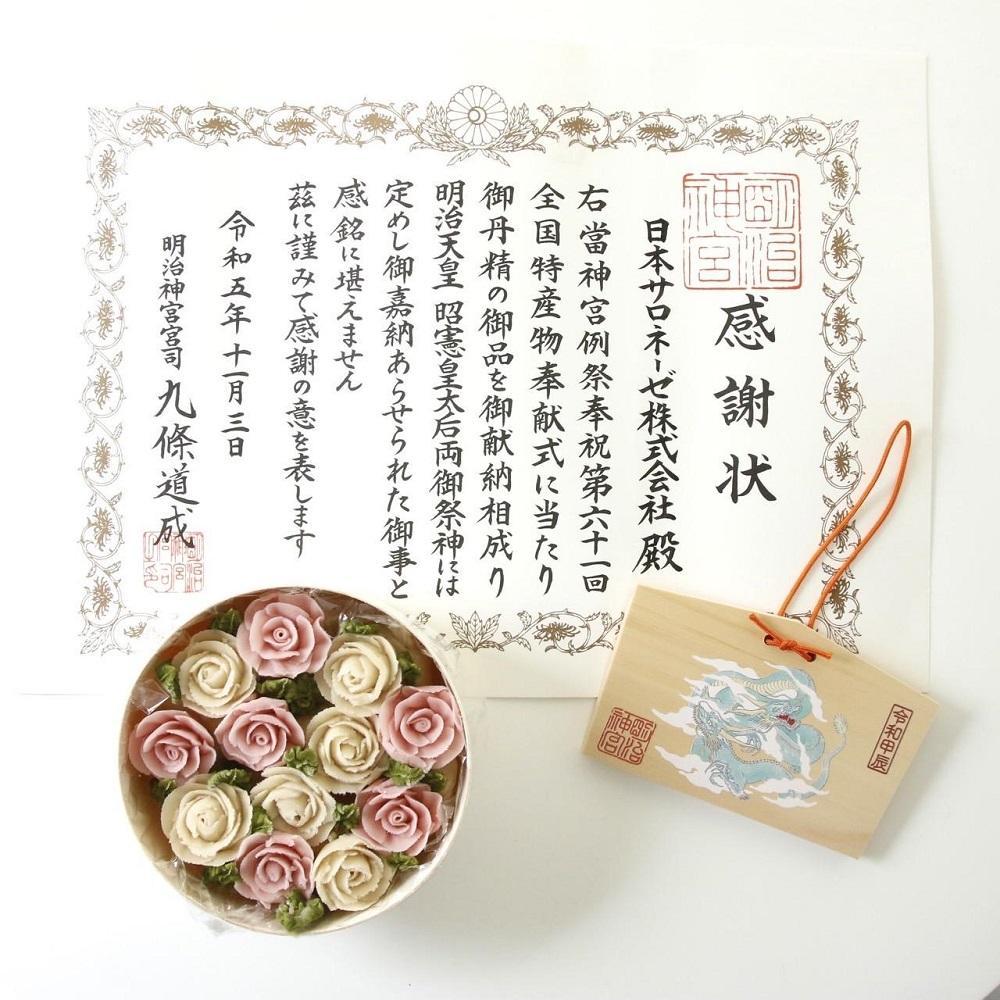 感謝状
明治神宮
日本サロネーゼ株式会社 殿
右當神宮例祭奉祝第六十一回
全国特産物奉献式に当たり
御丹精の御品を御献納相成り
明治天皇 昭憲皇太后両御祭神には
定めし御嘉納あらせられた御事と
感銘に堪えません
茲に謹みて感謝の意を表します
令和五年十一月三日
明治神宮宮司 九條道成
令和甲辰
明治神宮